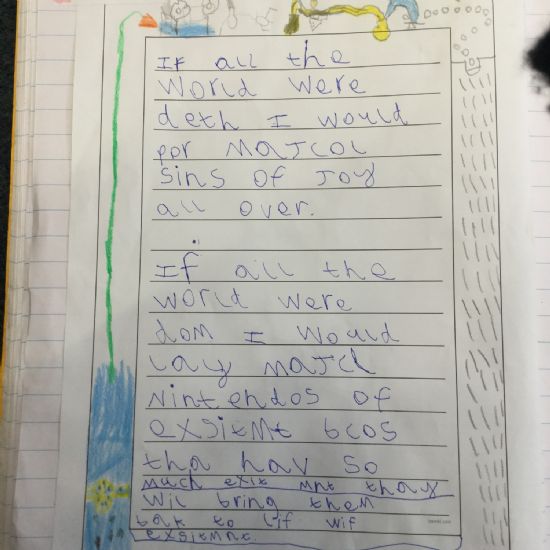 If all the
world were
deth I would
por majcol
sins of joy
all over.
If all the
world were
dom I would
lay majcl
nintendos of
exsitmt bcos
tha hav so
much exit mnt thay
wil bring them
bak to lif wif
exsitmnt.